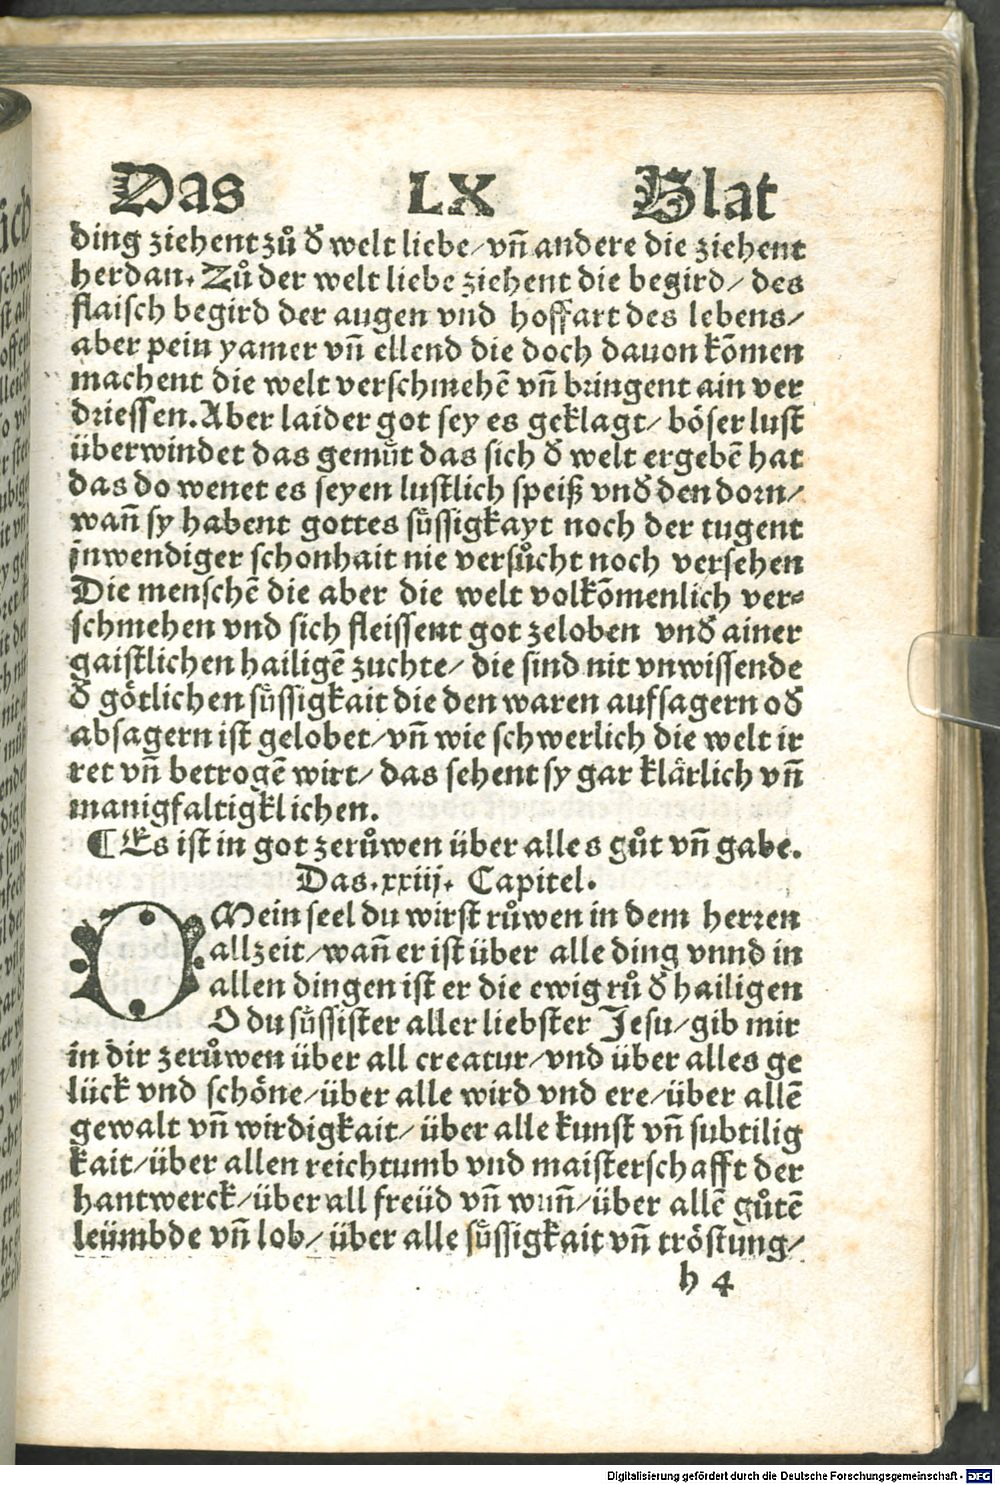 Das LX Blat
ding ziehent zů d̕ welt liebe/ vñ andere die ziehent
herdan. Zů der welt liebe ziehent die begird/ des
flaisch begird der augen vnd hoffart des lebens/
aber pein yamer vñ ellend die doch dauon kōmen
machent die welt verschmehē vñ bringent ain ver
driessen. Aber laider got sey es geklagt/ böser lust
überwindet das gemůt das sich d̕ welt ergebē hat
das do wenet es seyen lustlich speiß vnd̕ den dorn/
wañ sy habent gottes sůssigkayt noch der tugent
inwendiger schonhait nie versůcht noch versehen
Die menschē die aber die welt volkōmenlich ver⸗
schmehen vnd sich fleissent got zeloben vnd̕ ainer
gaistlichen hailigē zuchte/ die sind nit vnwissende
d̕ götlichen sůssigkait die den waren aufsagern od̕
absagern ist gelobet/ vñ wie schwerlich die welt ir
ret vñ betrogē wirt/ das sehent sy gar klärlich vñ
manigfaltigklichen.
¶ Es ist in got zerůwen über alles gůt vñ gabe.
Das .xxiij. Capitel.
O Mein seel du wirst růwen in dem herren
allzeit/ wañ er ist über alle ding vnnd in
allen dingen ist er die ewig rů d̕ hailigen
O du sůssister aller liebster Jesu/ gib mir
in dir zerůwen über all creatur/ vnd über alles ge
lück vnd schöne/ über alle wird vnd ere/ über allē
gewalt vñ wirdigkait/ über alle kunst vñ subtilig
kait/ über allen reichtumb vnd maisterschafft der
hantwerck/ über all freüd vñ wuñ/ über allē gůtē
leümbde vñ lob/ über alle sůssigkait vñ tröstung/
h 4
Digitalisierung gefördert durch die Deutsche Forschungsgemeinschaft - DFG